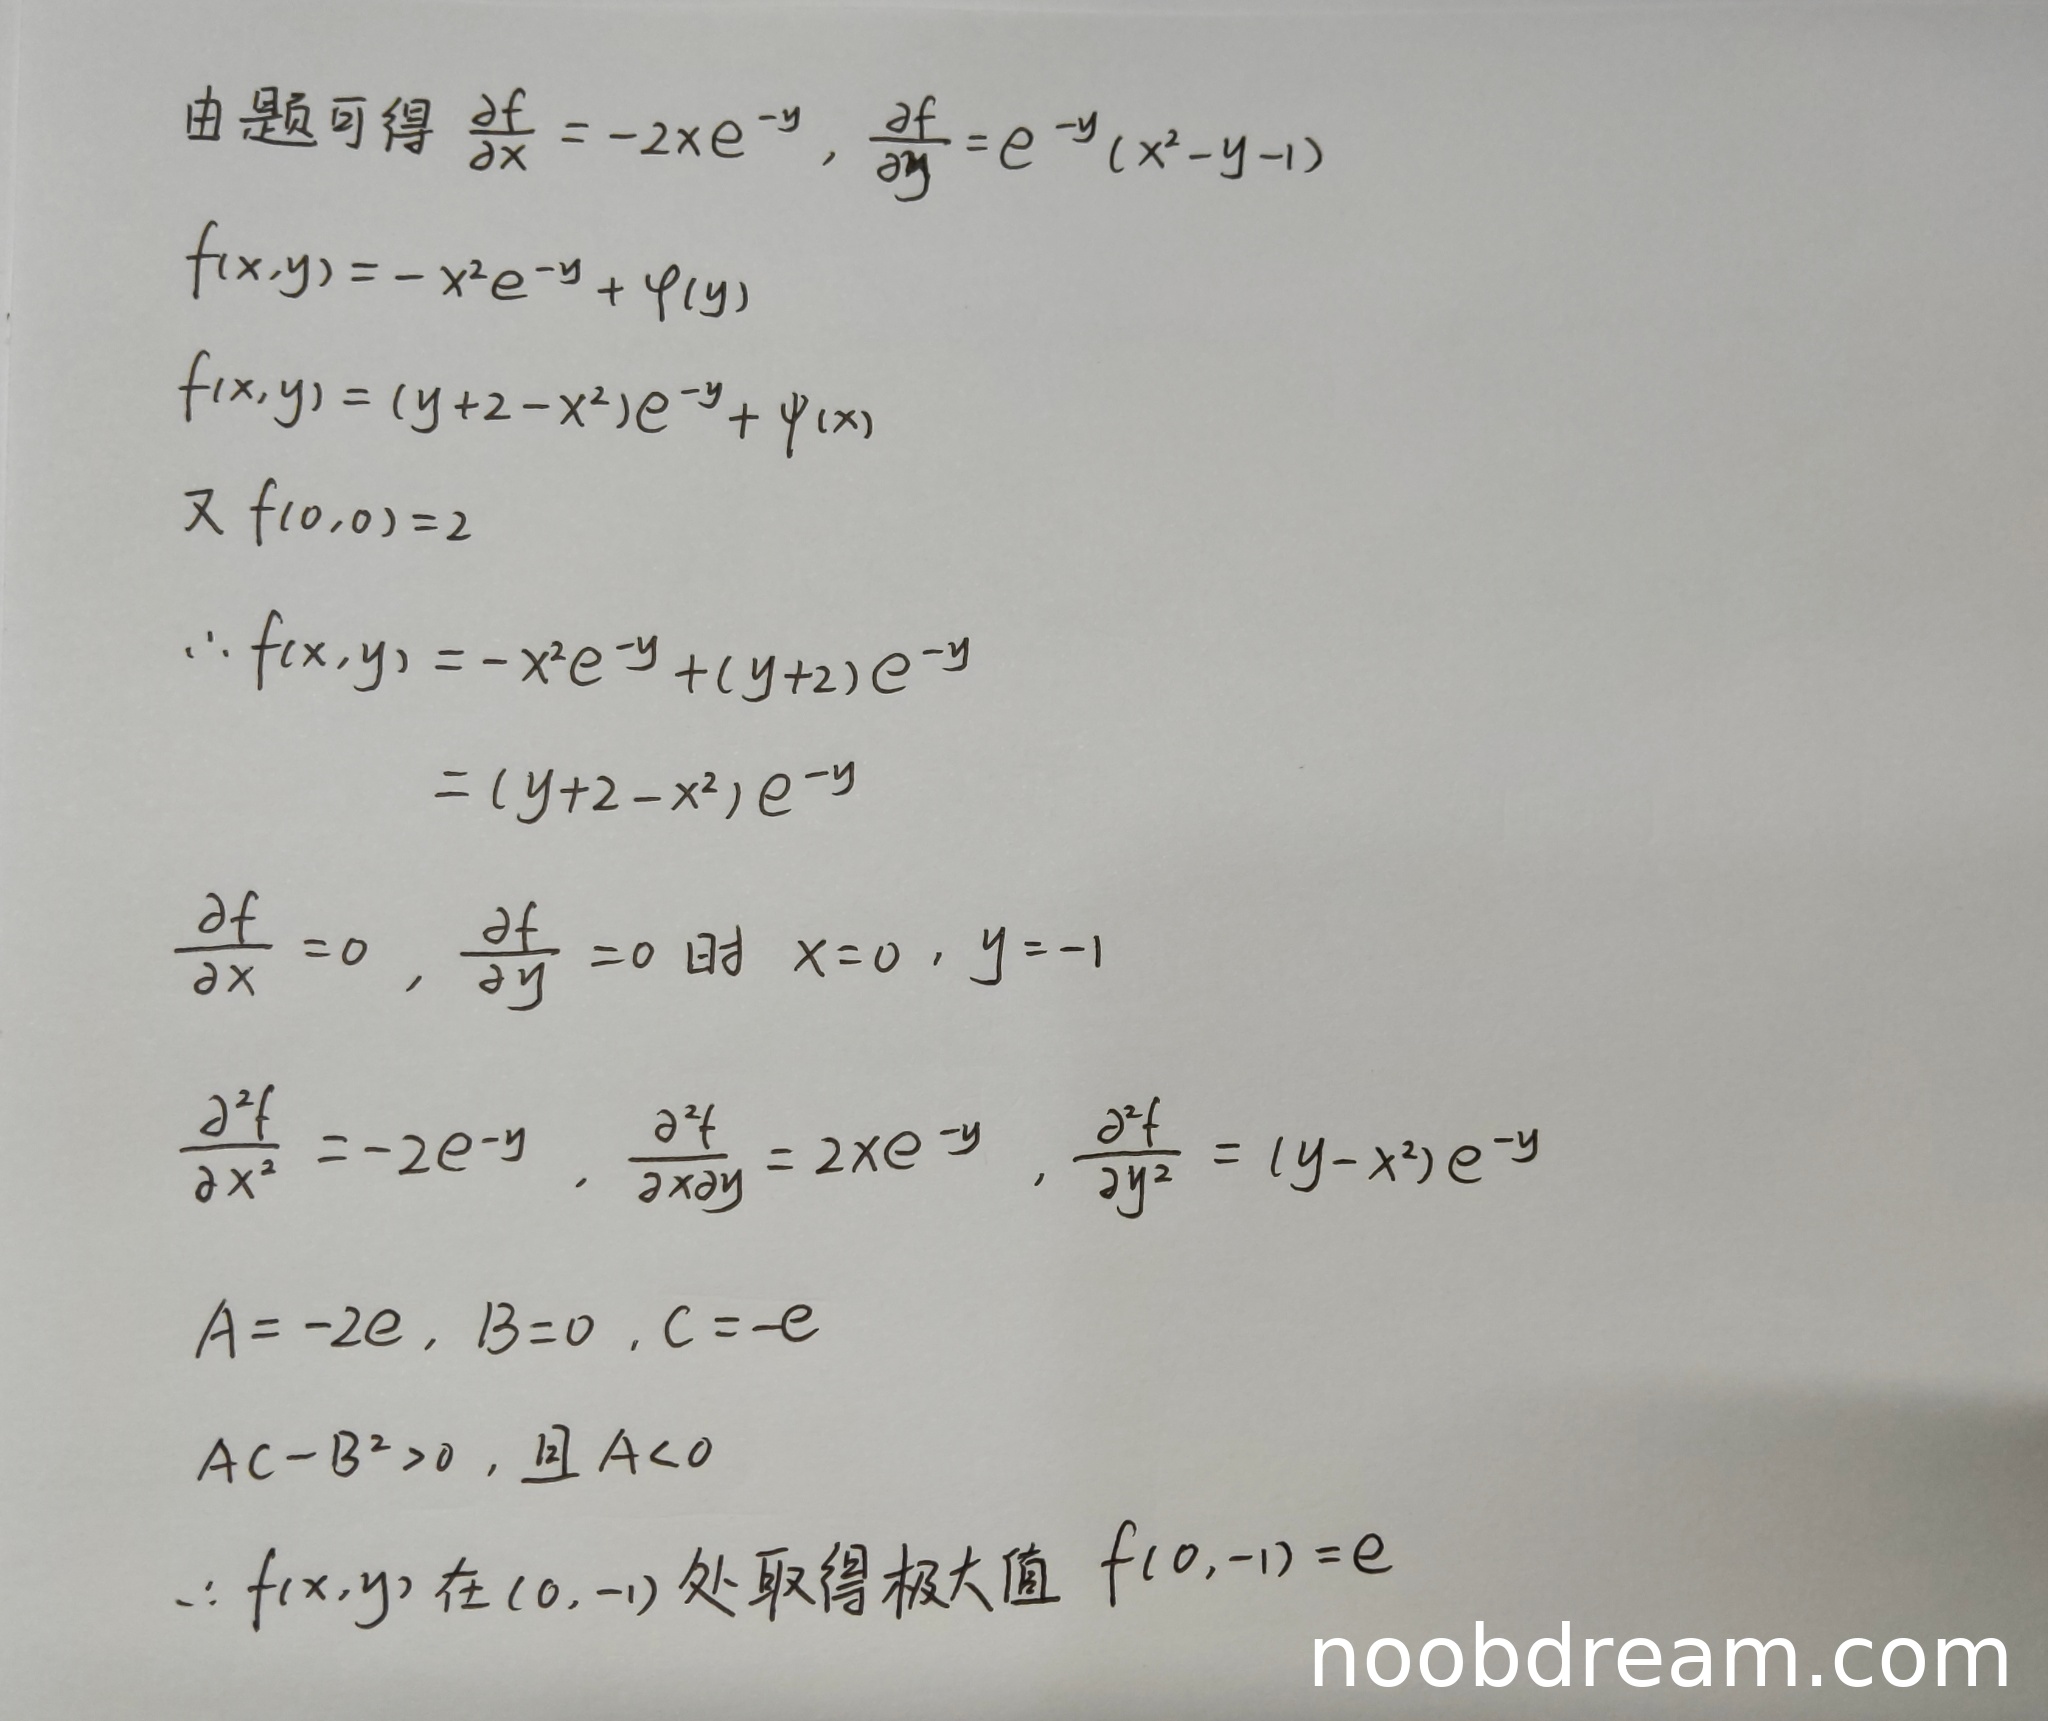 由题可得 ∂f/∂x = -2xe^{-y}, ∂f/∂y = e^{-y}(x²-y-1)
f(x,y) = -x²e^{-y} + φ(y)
f(x,y) = (y+2-x²)e^{-y} + ψ(x)
又 f(0,0)=2
∴ f(x,y) = -x²e^{-y} + (y+2)e^{-y}
= (y+2-x²)e^{-y}
∂f/∂x = 0, ∂f/∂y = 0 时 x=0, y=-1
∂²f/∂x² = -2e^{-y}, ∂²f/∂x∂y = 2xe^{-y}, ∂²f/∂y² = (y-x²)e^{-y}
A = -2e, B=0, C=-e
AC-B²>0, 且 A<0
∴ f(x,y) 在(0,-1) 处取得极大值 f(0,-1)=e
noobdream.com